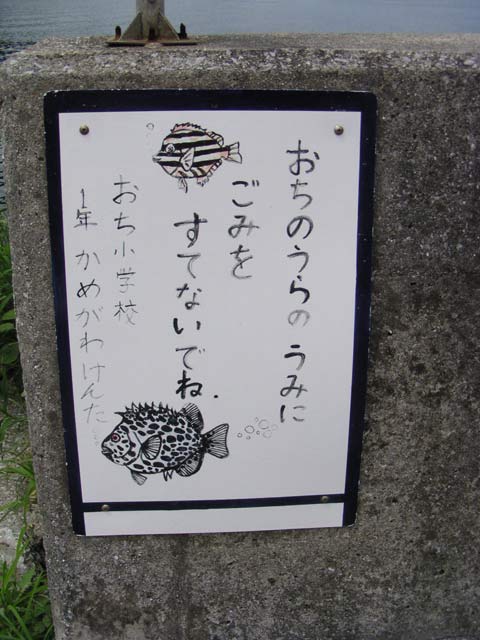 おちのうらのうみに
ごみを
すてないでね.
おち小学校
1年 かめがわけんた